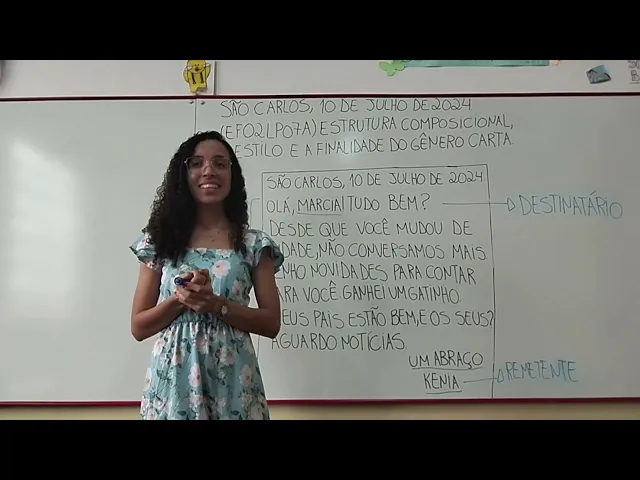 SÃO CARLOS, 10 DE JULHO DE 2024
(EF02LP07A) ESTRUTURA COMPOSICIONAL,
ESTILO E A FINALIDADE DO GÊNERO CARTA.
SÃO CARLOS, 10 DE JULHO DE 2024
OLÁ, MARCIA! TUDO BEM? DESTINATÁRIO
DESDE QUE VOCÊ MUDOU DE
IDADE, NÃO CONVERSAMOS MAIS
ENHO NOVIDADES PARA CONTAR
ARA VOCÊ GANHEI UM GATINHO.
EUS PAIS ESTÃO BEM, E OS SEUS?
AGUARDO NOTÍCIAS.
UM ABRAÇO
KENIA REMETENTE